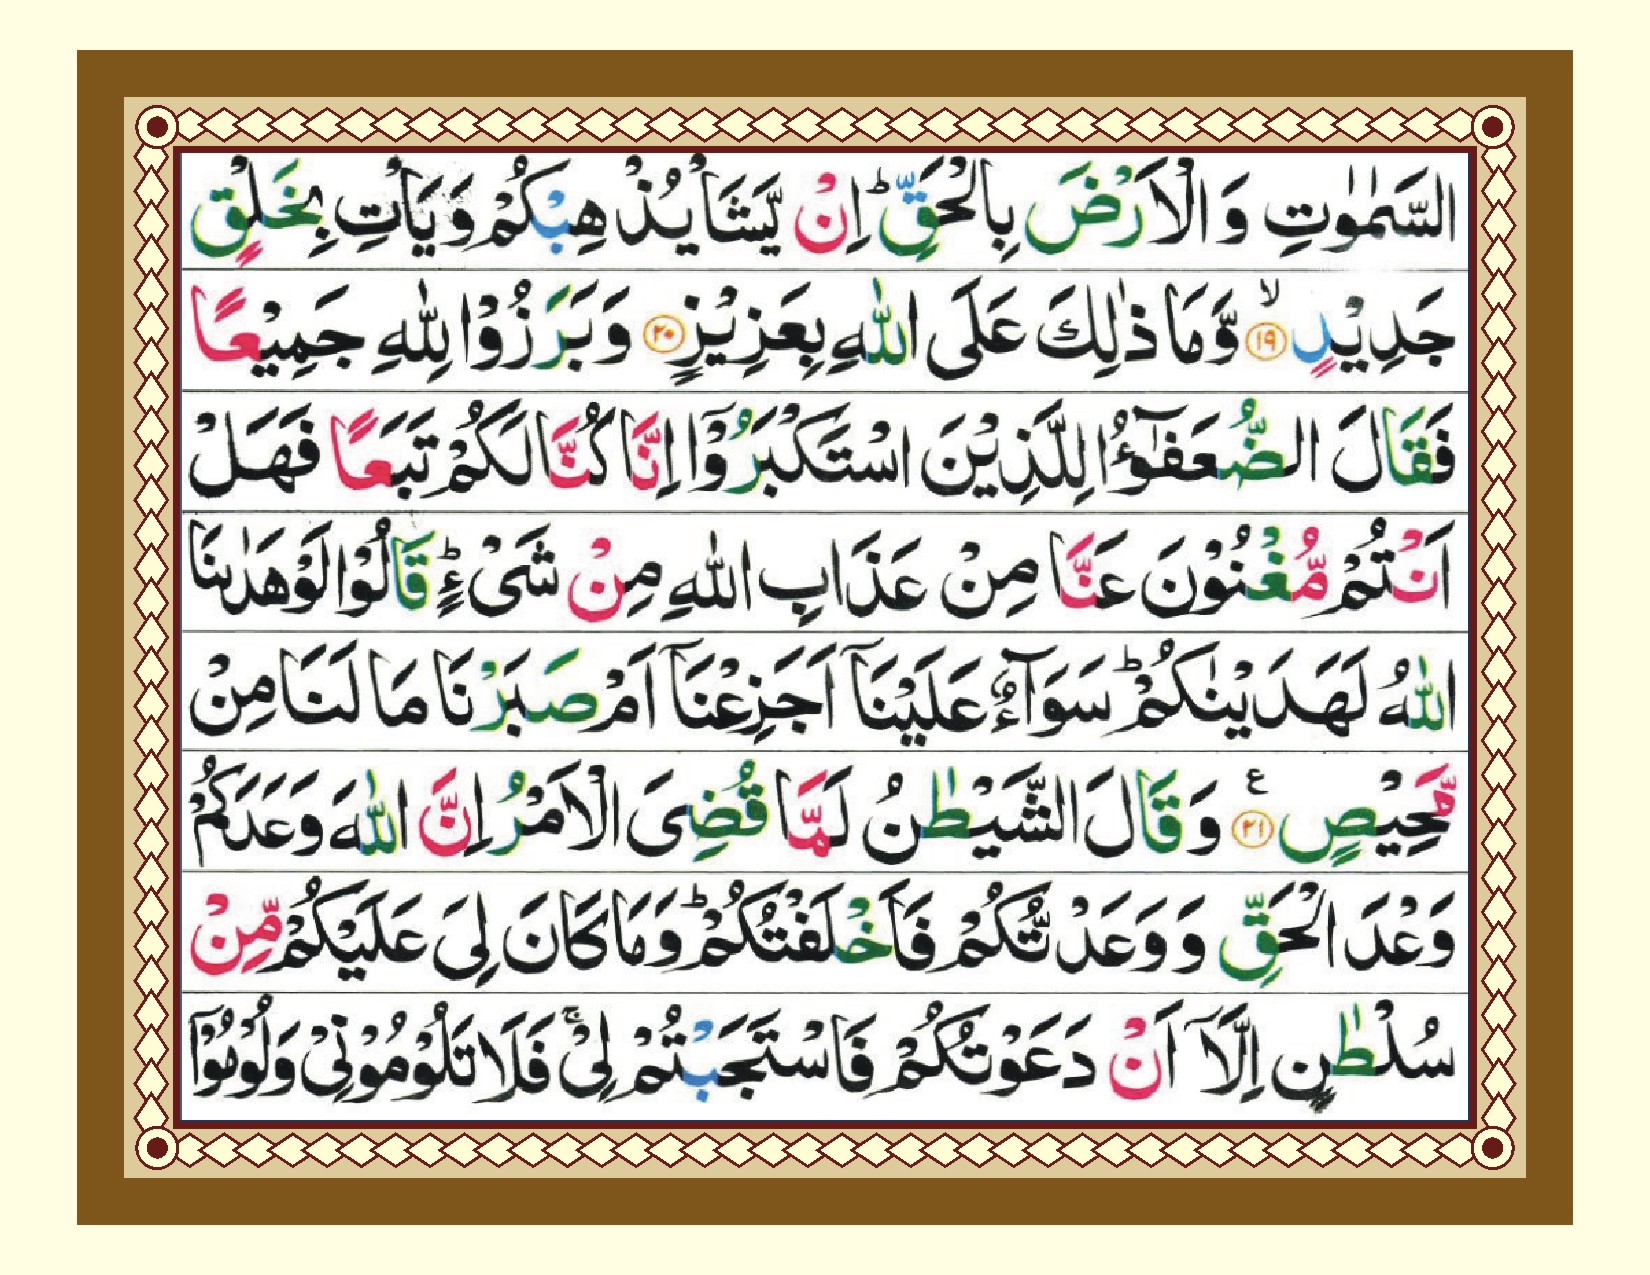 السَّمٰوٰتِ وَ الْاَرْضَ بِالْحَقِّ ؕ اِنْ یَّشَاْ یُذْهِبْكُمْ وَ یَاْتِ بِخَلْقٍ
جَدِیْدٍ ۙ ﴿۱۹﴾ وَّ مَا ذٰلِكَ عَلَی اللّٰهِ بِعَزِیْزٍ ﴿۲۰﴾ وَ بَرَزُوْا لِلّٰهِ جَمِیْعًا
فَقَالَ الضُّعَفٰٓؤُا لِلَّذِیْنَ اسْتَكْبَرُوْۤا اِنَّا كُنَّا لَكُمْ تَبَعًا فَهَلْ
اَنْتُمْ مُّغْنُوْنَ عَنَّا مِنْ عَذَابِ اللّٰهِ مِنْ شَیْءٍ ؕ قَالُوْا لَوْ هَدٰىنَا
اللّٰهُ لَهَدَیْنٰكُمْ ؕ سَوَآءٌ عَلَیْنَاۤ اَجَزِعْنَاۤ اَمْ صَبَرْنَا مَا لَنَا مِنْ
مَّحِیْصٍ ﴿۲۱﴾ ع وَ قَالَ الشَّیْطٰنُ لَمَّا قُضِیَ الْاَمْرُ اِنَّ اللّٰهَ وَعَدَكُمْ
وَعْدَ الْحَقِّ وَ وَعَدْتُّكُمْ فَاَخْلَفْتُكُمْ ؕ وَ مَا كَانَ لِیَ عَلَیْكُمْ مِّنْ
سُلْطٰنٍ اِلَّاۤ اَنْ دَعَوْتُكُمْ فَاسْتَجَبْتُمْ لِیْ ۚ فَلَا تَلُوْمُوْنِیْ وَ لُوْمُوْۤا